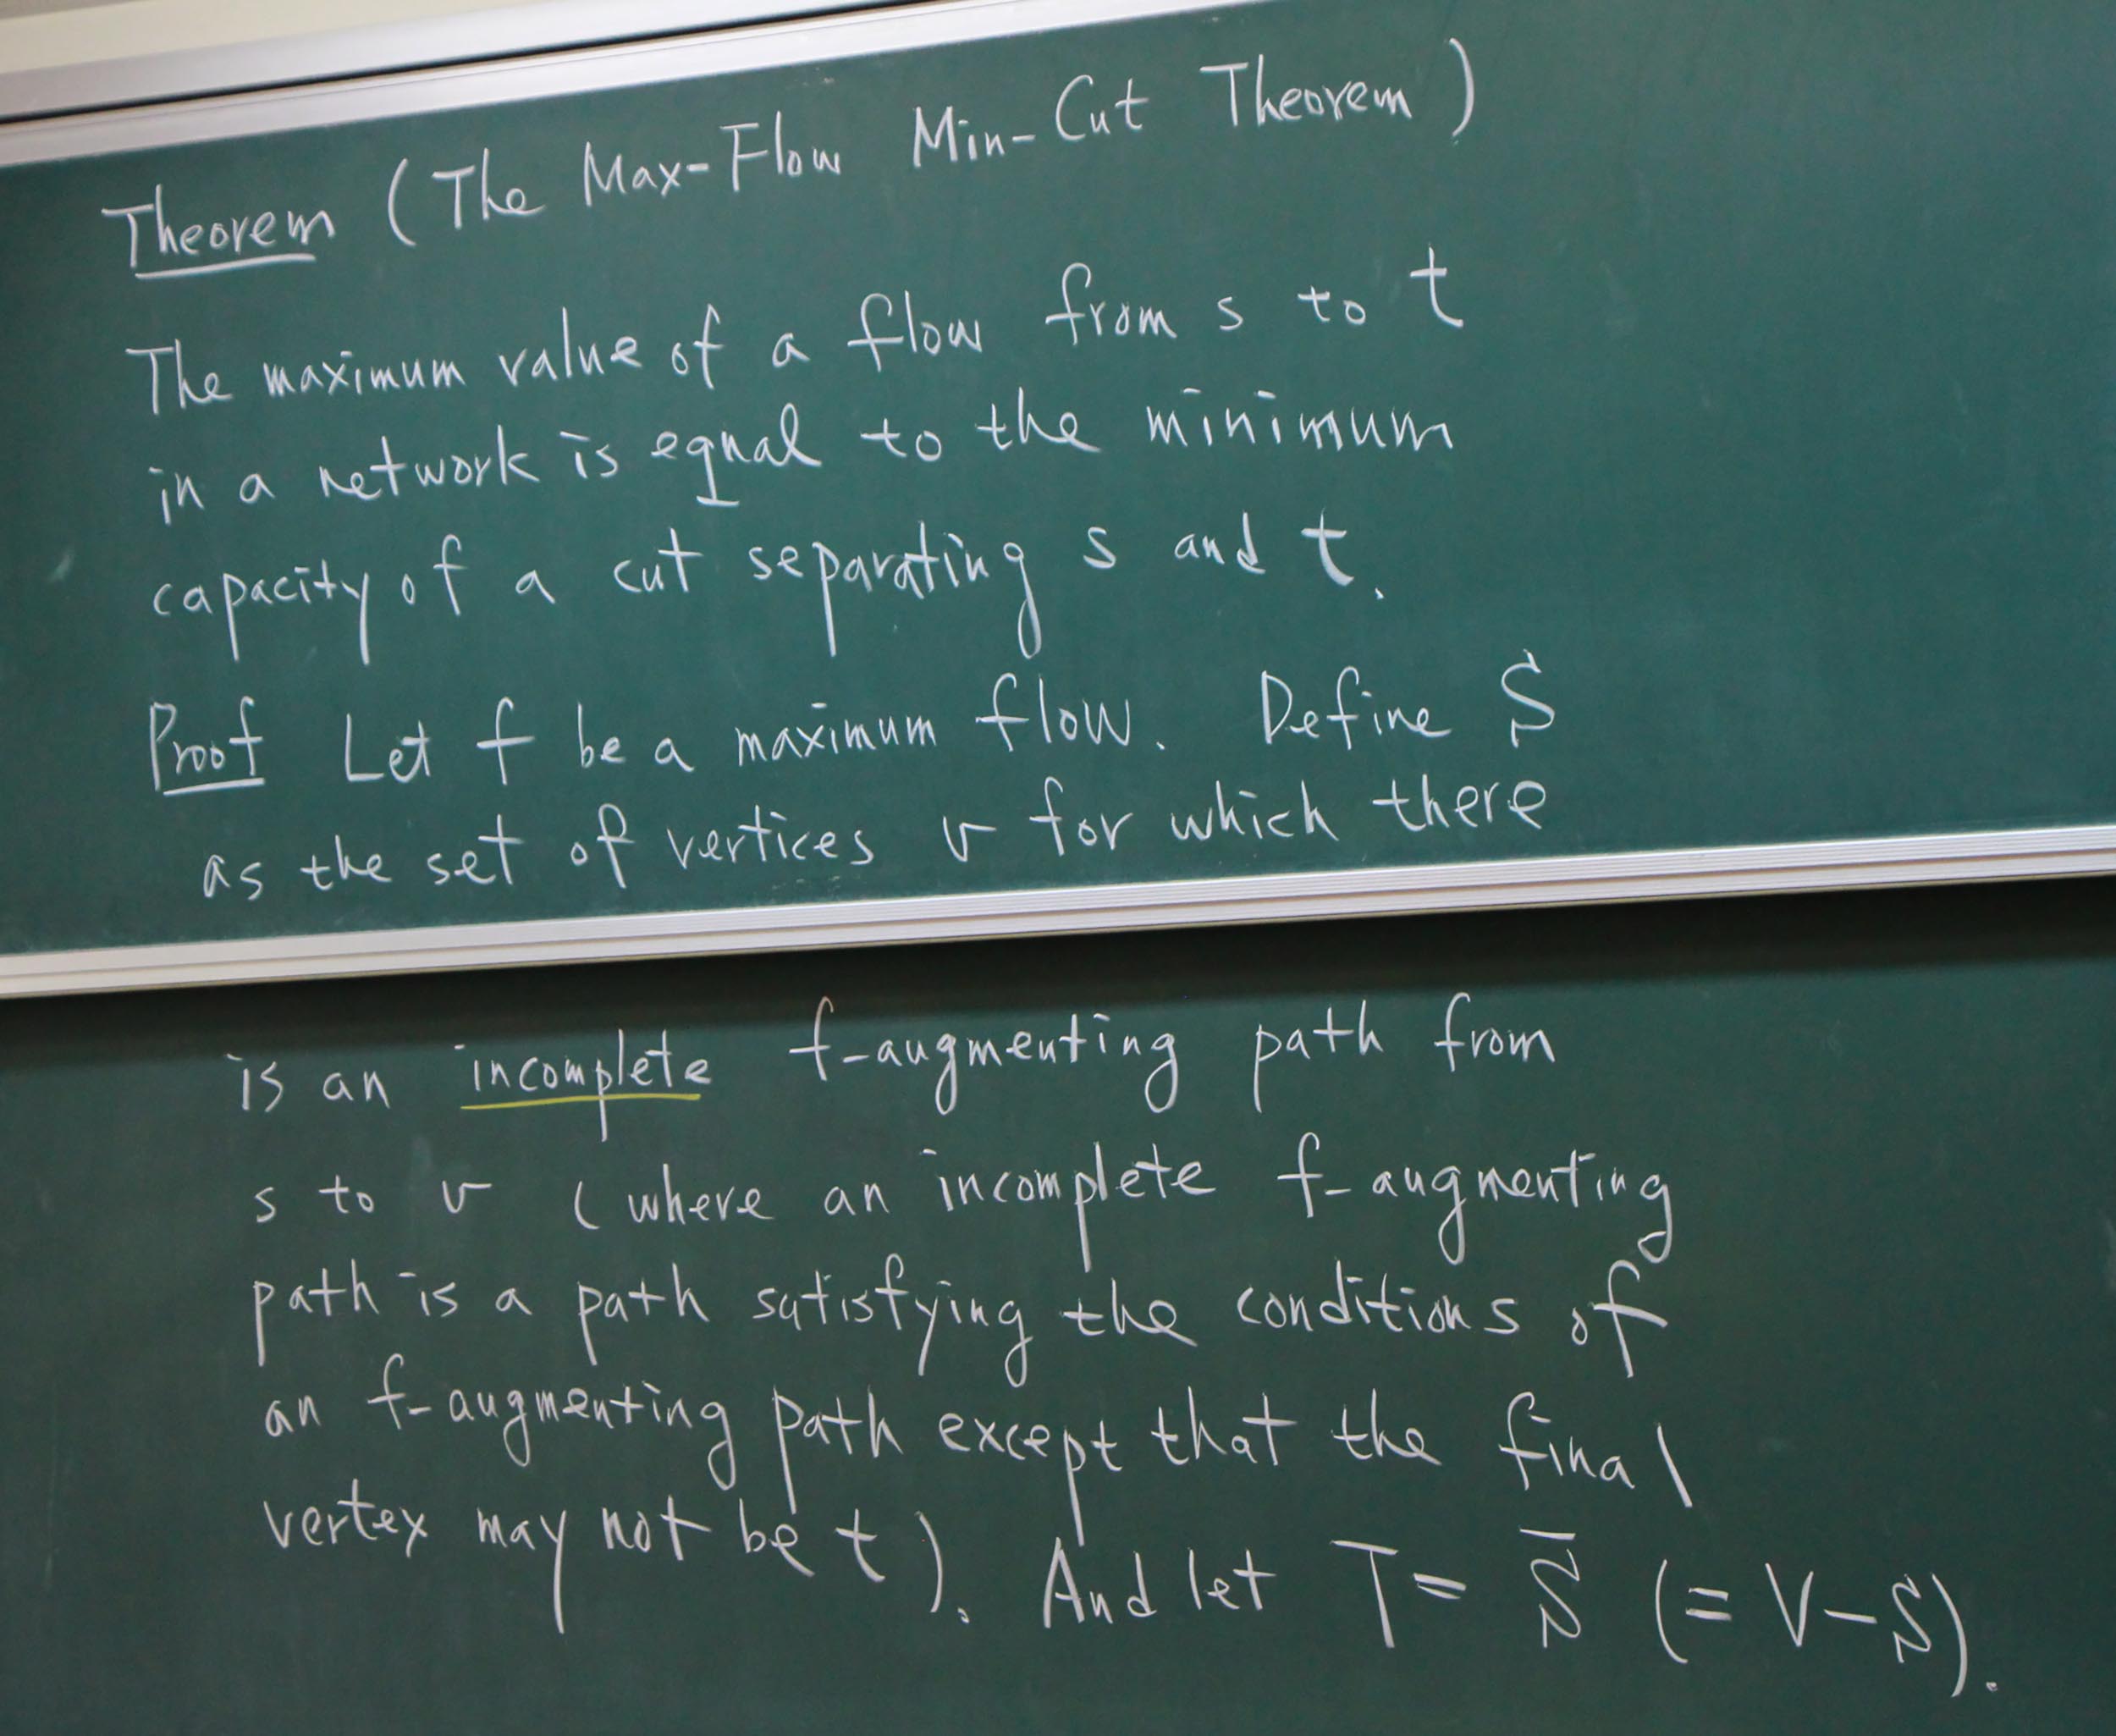 Theorem (The Max-Flow Min-Cut Theorem)
The maximum value of a flow from s to t
in a network is equal to the minimum
capacity of a cut separating s and t.
Proof Let f be a maximum flow. Define S
as the set of vertices v for which there
is an incomplete f-augmenting path from
s to v (where an incomplete f-augmenting
path is a path satisfying the conditions of
an f-augmenting path except that the final
vertex may not be t). And let T = S̅ (= V-S).